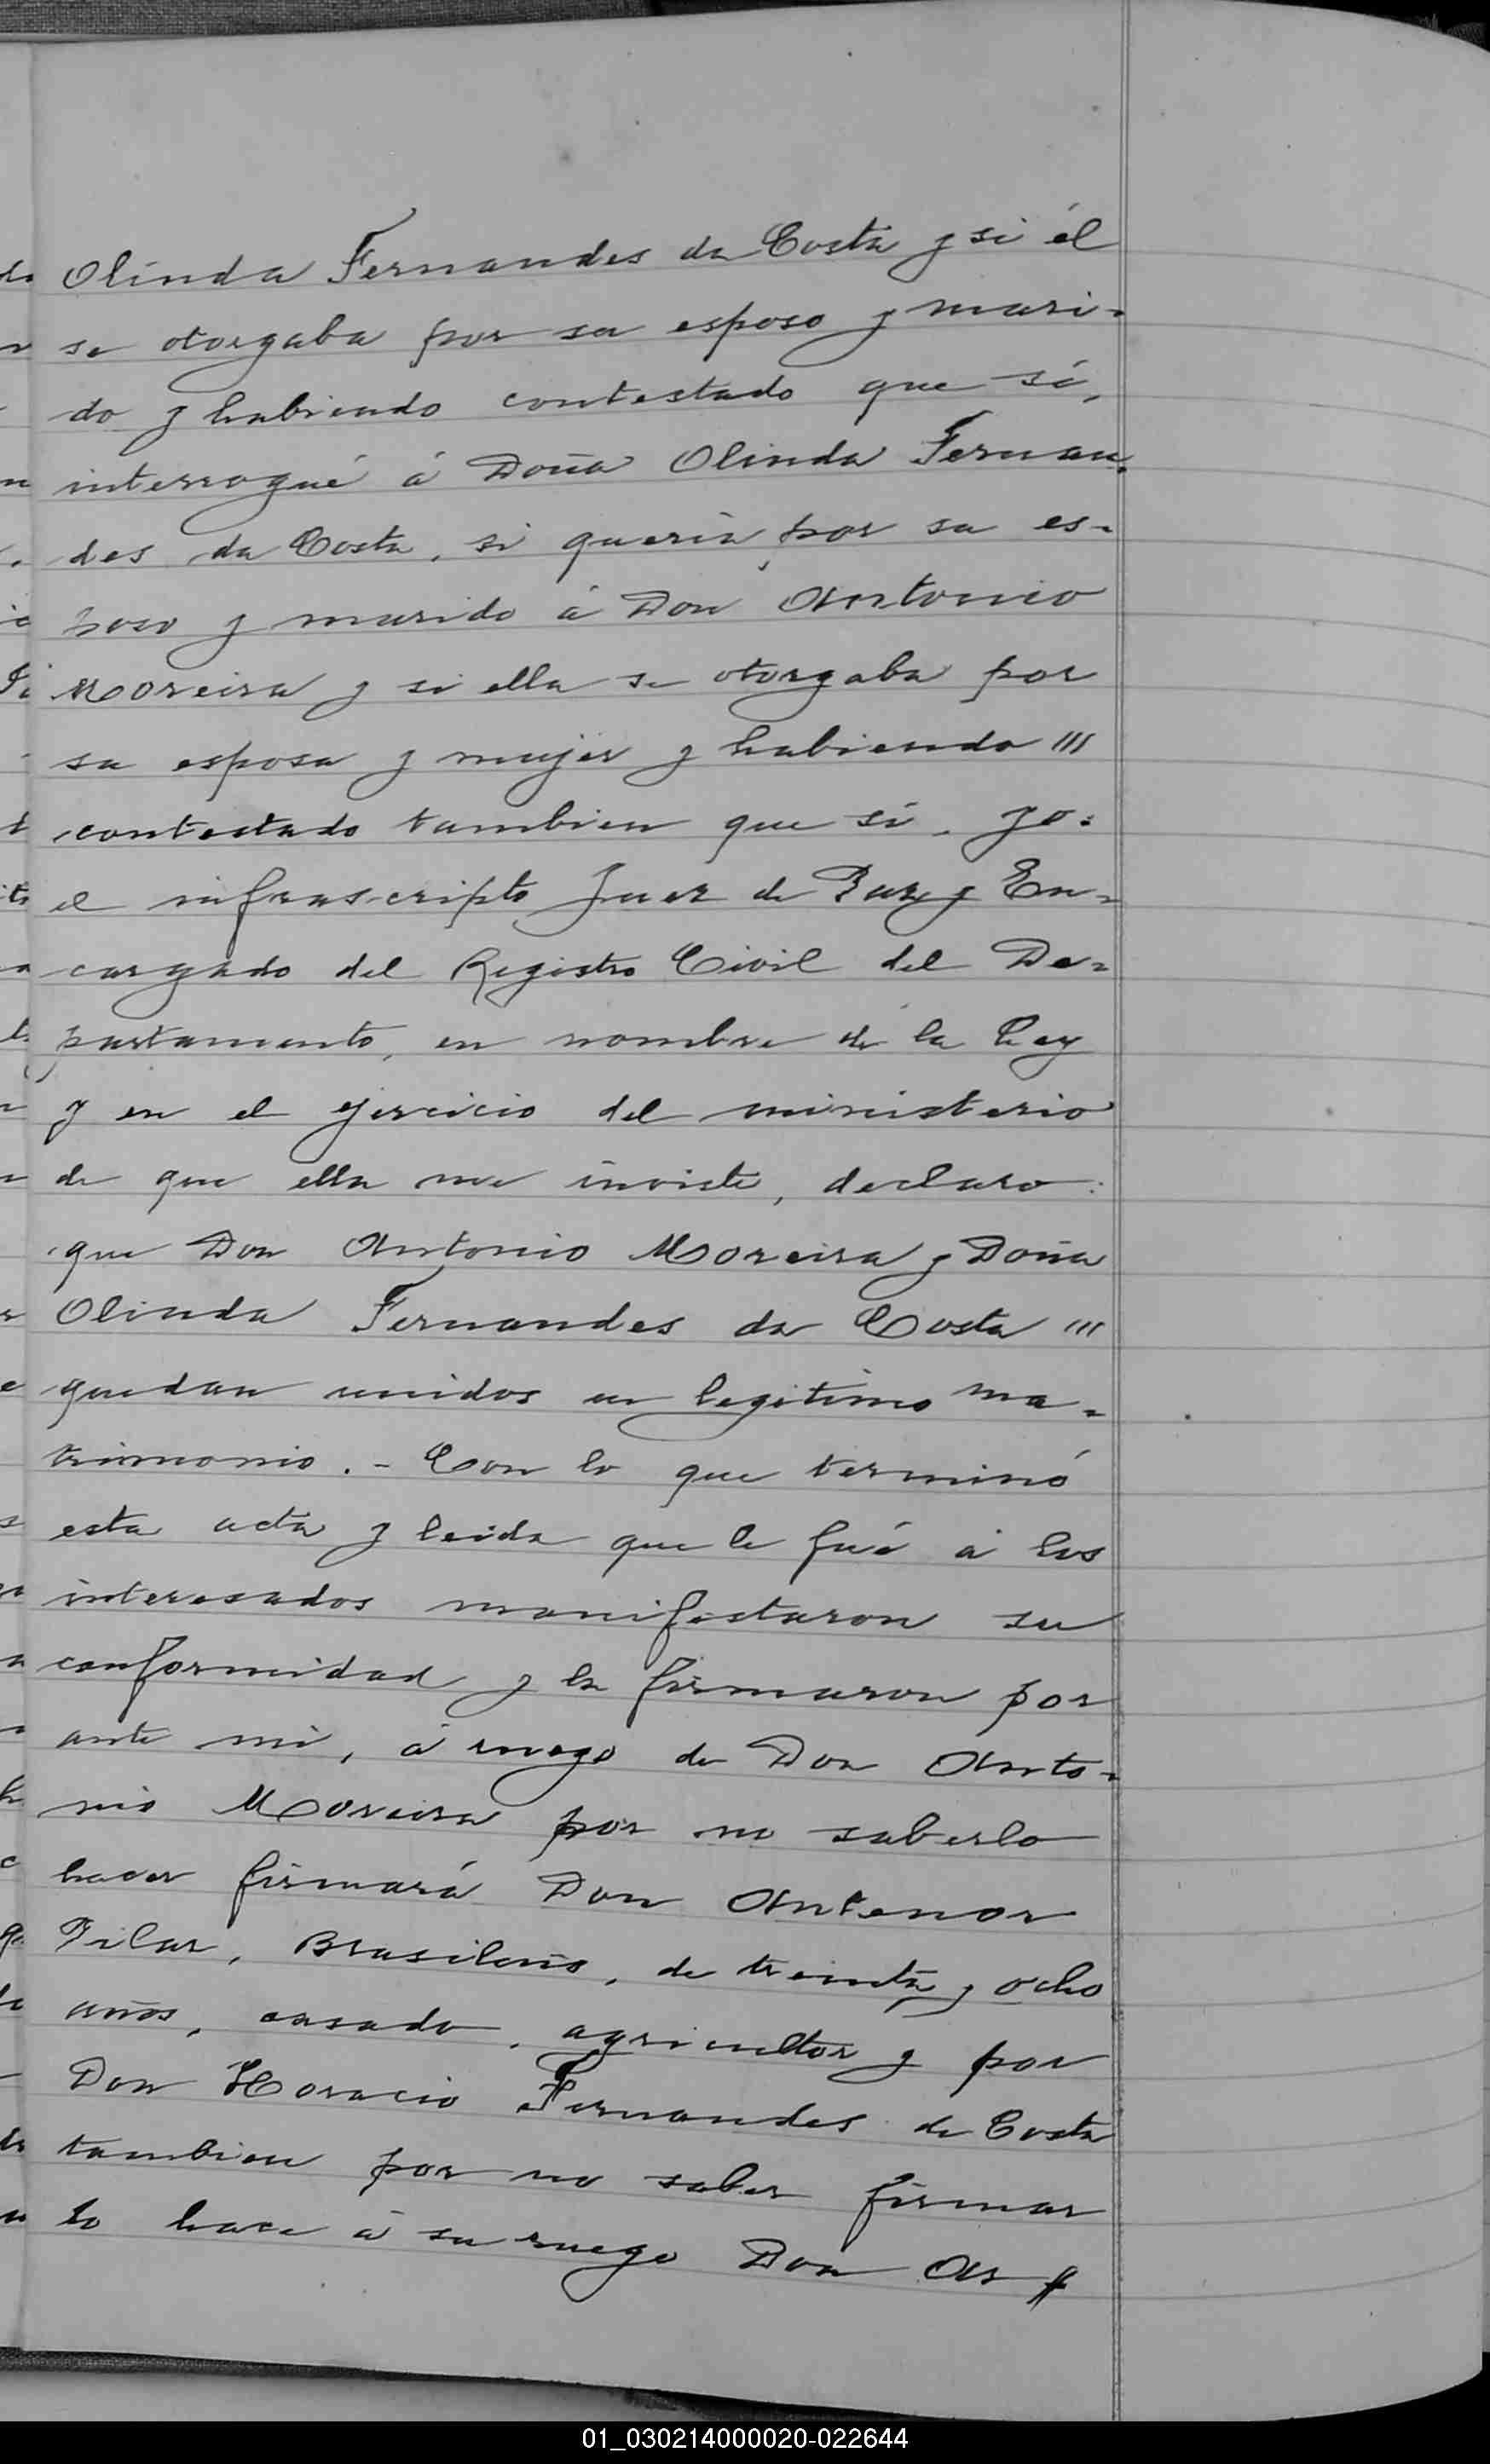 Olinda Fernandes da Costa y si él
se otorgaba por su esposo y mari-
do y habiendo contestado que sí,
interrogué á Doña Olinda Fernan-
des da Costa, si queria por su es-
poso y marido á Don Antonio
Moreira y si ella se otorgaba por
su esposa y mujer y habiendo "'
contestado tambien que sí, yo:
el infrascripto Juez de Paz y En-
cargado del Registro Civil del De-
partamento, en nombre de la Ley
y en el ejercicio del ministerio
de que ella me inviste, declaro:
que Don Antonio Moreira y Doña
Olinda Fernandes da Costa "'
quedan unidos en legitimo ma-
trimonio.- Con lo que terminó
esta acta y leida que le fué á los
interesados manifestaron su
conformidad y la firmaron por
ante mi, á ruego de Don Anto-
nio Moreira por no saberlo
hacer firmará Don Antenor
Pilar, Brasileño, de treinta y ocho
años, casado, agricultor y por
Don Horacio Fernandes da Costa
tambien por no saber firmar
lo hace á su ruego Don Ar
01_030214000020-022644